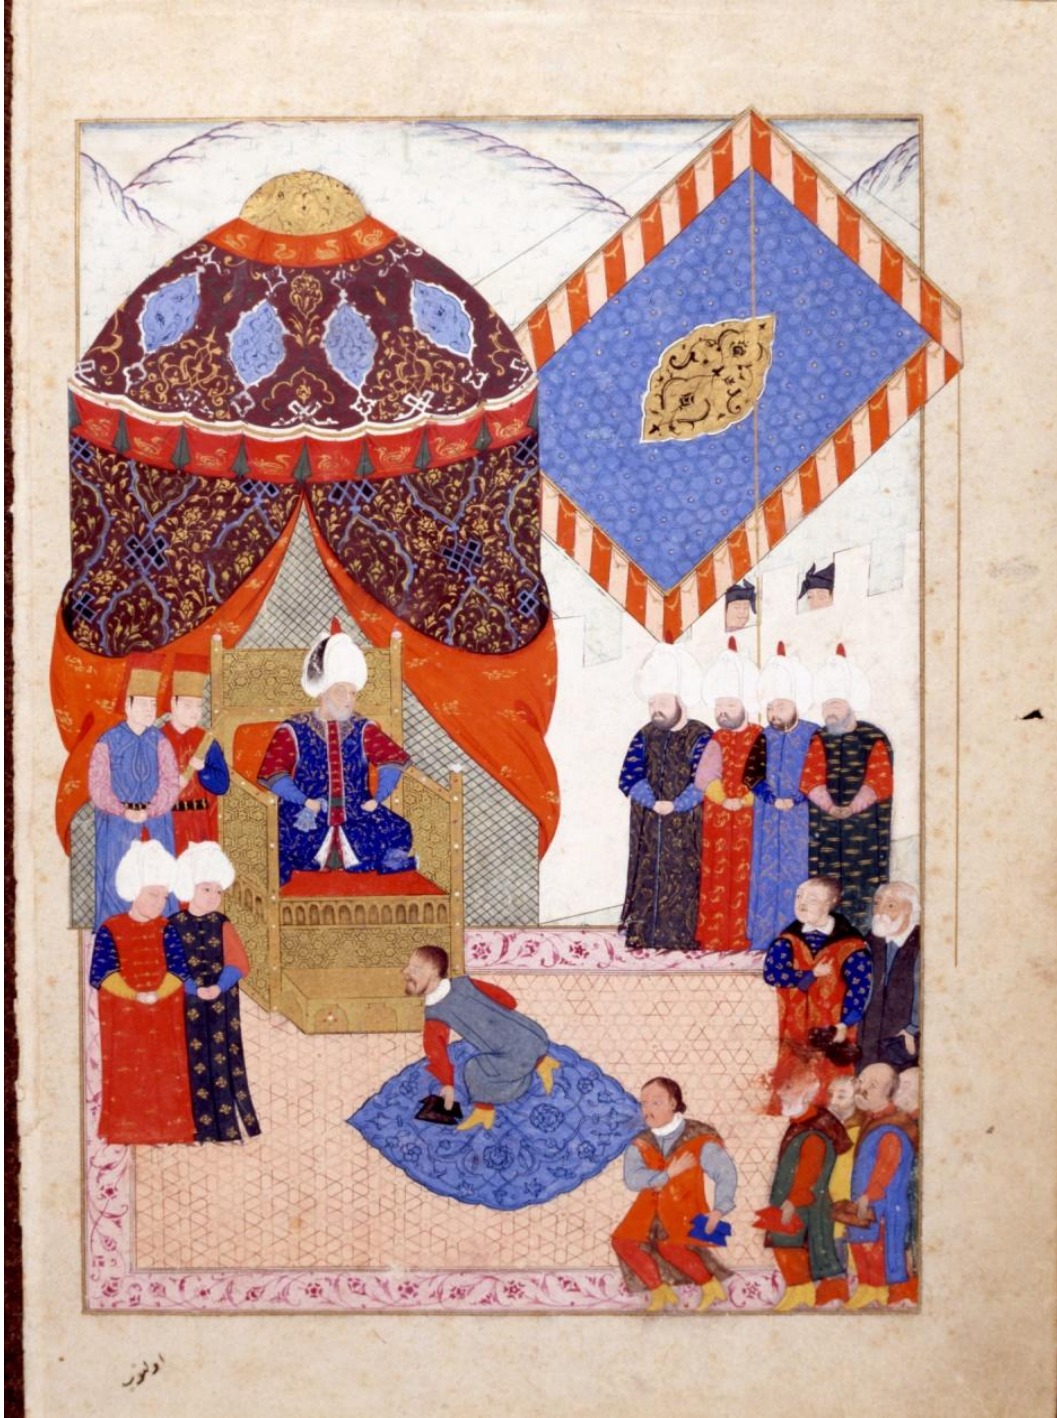 اولنوب